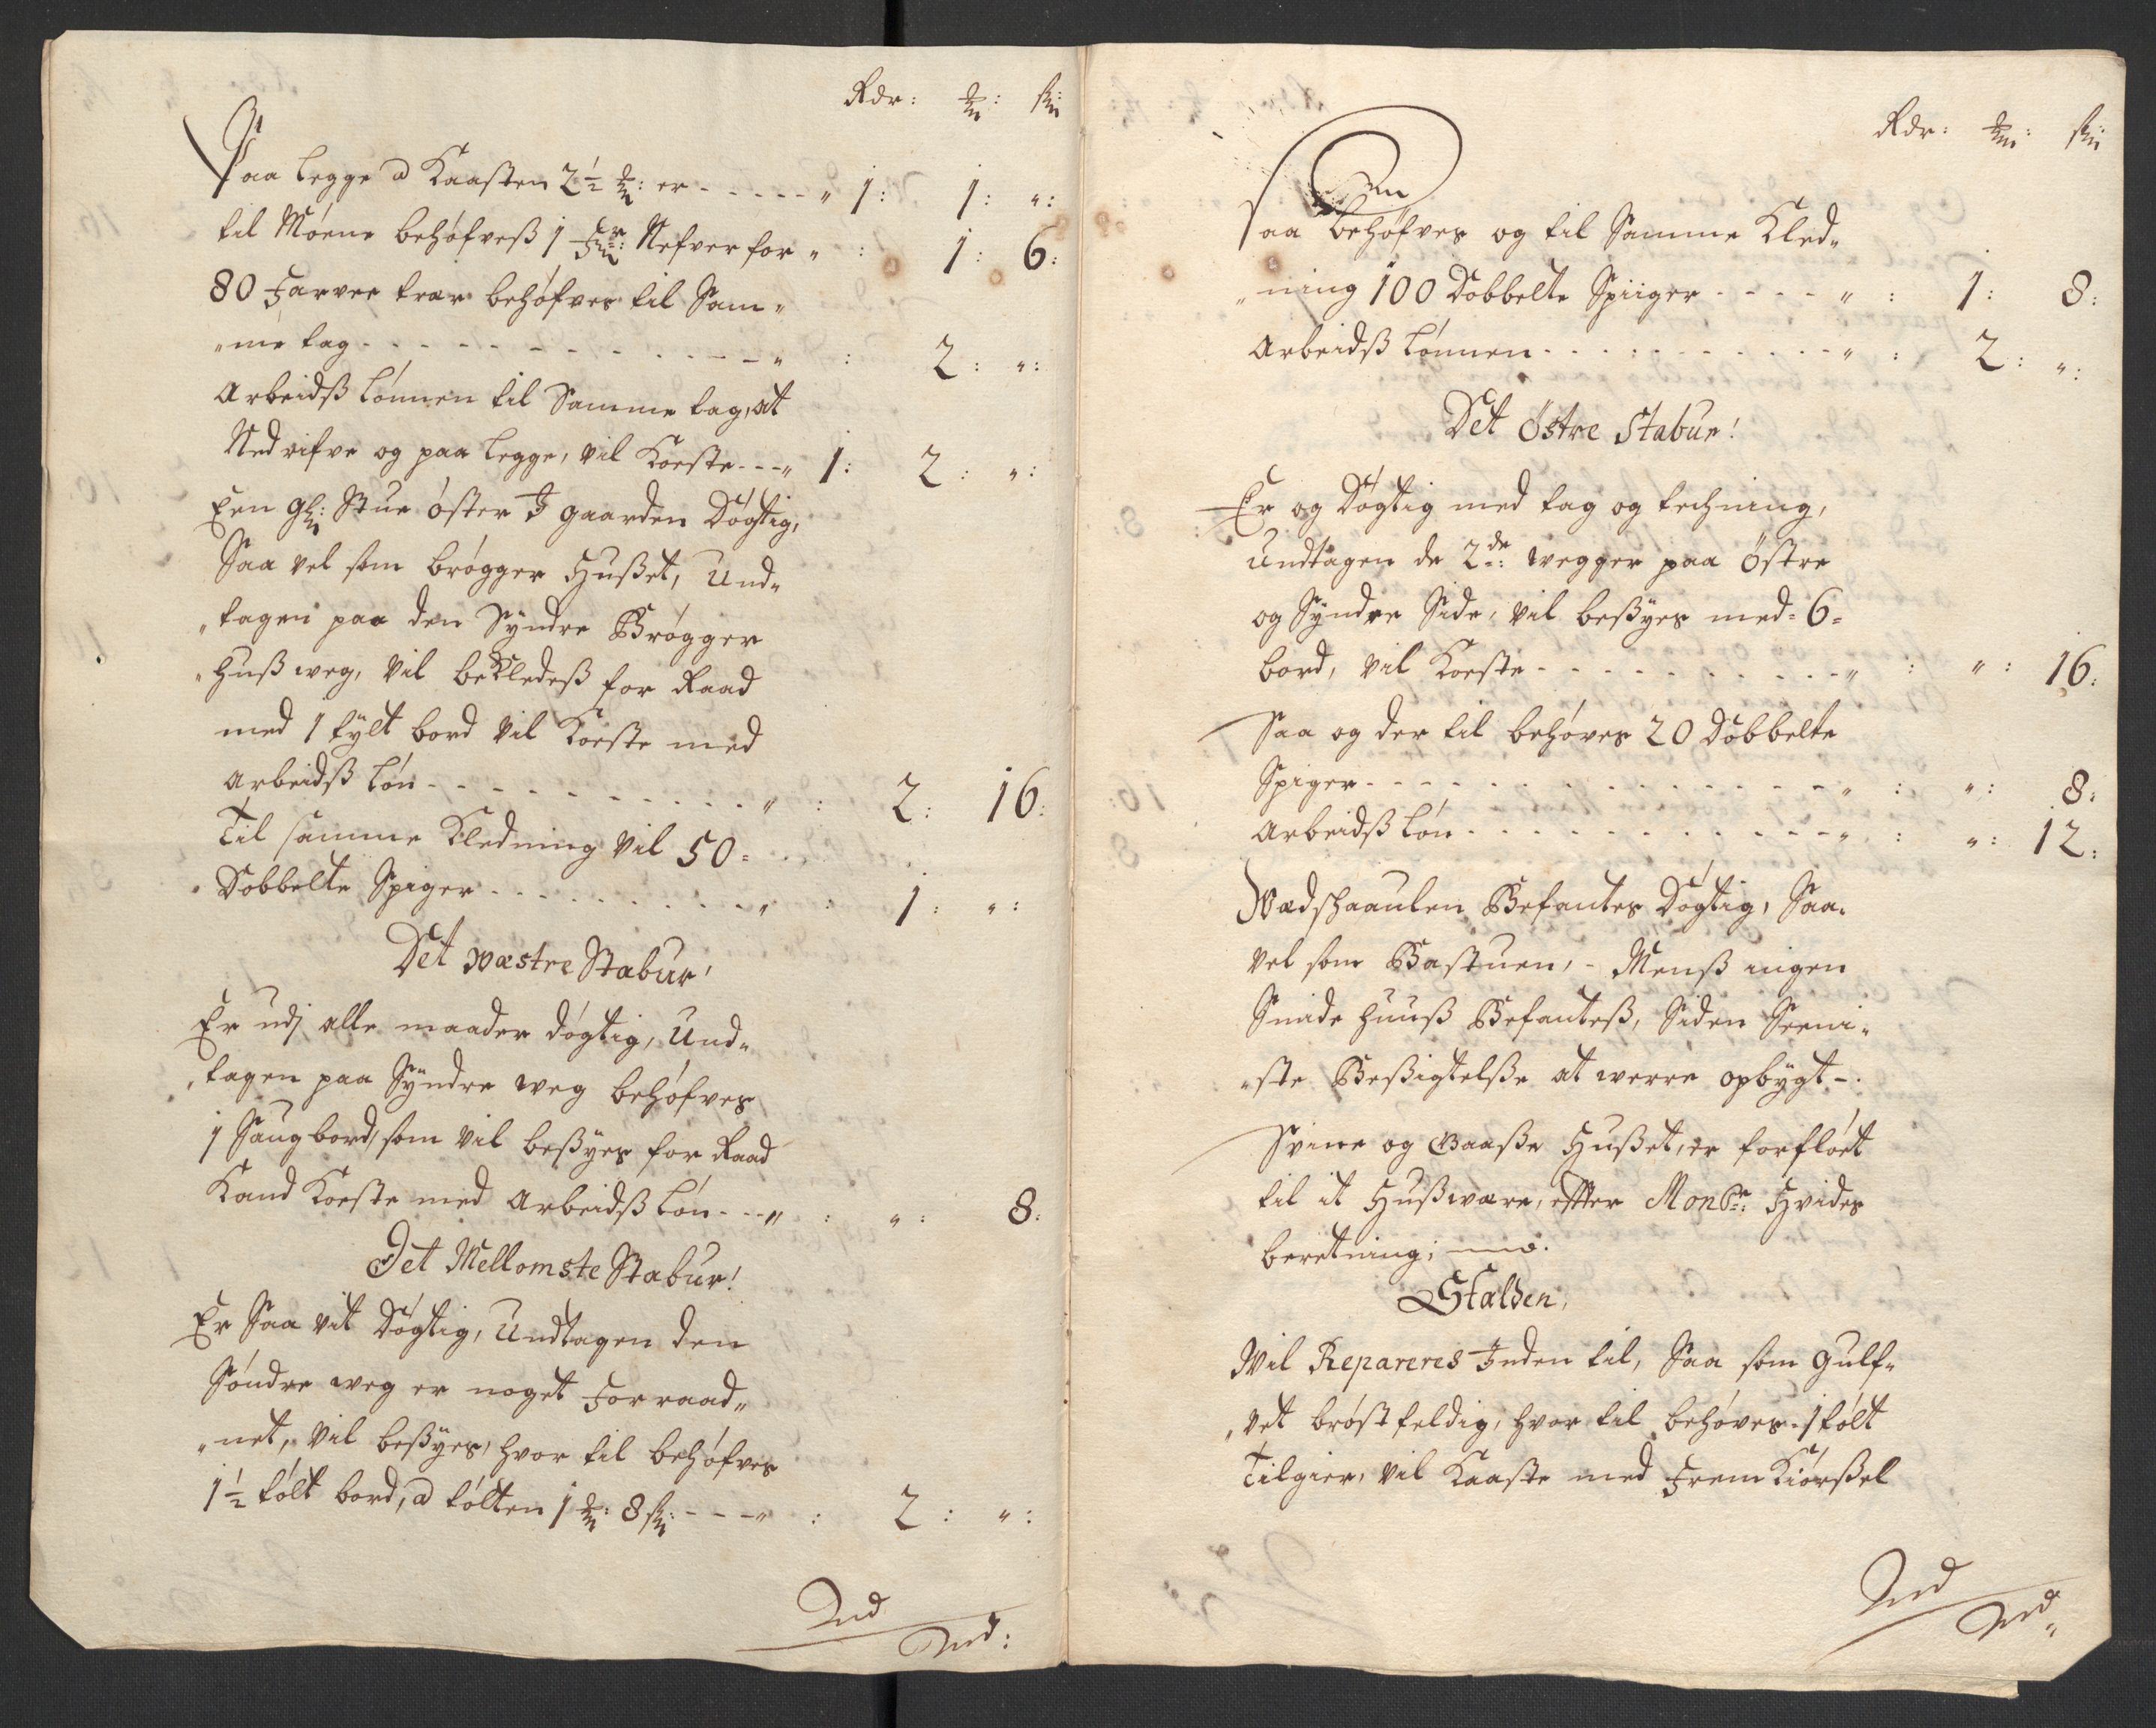 Rdr: mk: sk:
Paa legge a Kaasten 2½ mk: er - - - - - „ 1: 1: „:
til Møene behøfveß 1 Nefver for „ : 1: 6:
80 Jarver trær behøfves til Sam„
„me tag - - - - - - - - - „ : 2: „:
Arbeidß lønnen til Samme tag, at
Nedrifve og paa legge, vil Koeste - - - „ 1: 2: „:
Een gl: Stue øster I gaarden Døgtig,
Saa vel som brøgger Hußet, Und„
„tagen paa den Syndre Brøgger
„huß weg, vil bekledeß for Raad
med 1 tylt bord vil Koeste med
Arbeidß løn - - - - - - - - „ : 2: 16:
Til samme Kledning vil 50=
Dobbelte Spiger - - - - - - - - „ : 1: „:
Det wæstre Stabur!
Er udj alle maader døgtig, Und„
„tagen paa Syndre weg behøfves
1 Saugbord, som vil beßyes for Raad
Kand Koeste med Arbeidß løn - - - „ : „: 8:
Det Mellomste Stabur!
Er Saa vit Døgtig, Undtagen den
Søndre weg er noget Forraad„
„net, vil beßyes, hvor til behøfves
1½ tølt bord, a tølten 1 mk: 8 sk: - - - „ : 2: „:
Rdr: mk: sk:
Paa behøfves og til Samme Kled„
„ning 100 Dobbelte Spiiger - - - - „ : 1: 8:
Arbeidß lønnen - - - - - - - - „ : 2: „:
Det Østre Stabur!
Er og Døgtig med tag og techning,
Undtagen de 2de: wegger paa Østre
og Syndre Side, vil beßyes med= 6=
bord, vil Koeste - - - - - - - - „ : „: 16:
Saa og der til behøves 20 Dobbelte
Spiger - - - - - - - - - - „ : „: 8:
Arbeidß løn - - - - - - - - „ : „: 12:
Wedschaaulen Befantes Døgtig, Saa„
vel som Bastuen, - Menß ingen
Smide huuß Befanteß, Siden Seeni„
„ste Beßigtelße at werre opbygt -.
Sviine og Gaaße Hußet, er forfløet
til it Hußwære, efter Monsr: Hvides
beretning;
Stalden,
Wil Repareres Inden til, Saa som gulf„
„vet brøstfeldig, hvor til behøves. 1 tølt
Tilgier, vil Kaaste med Frem Kiørßel